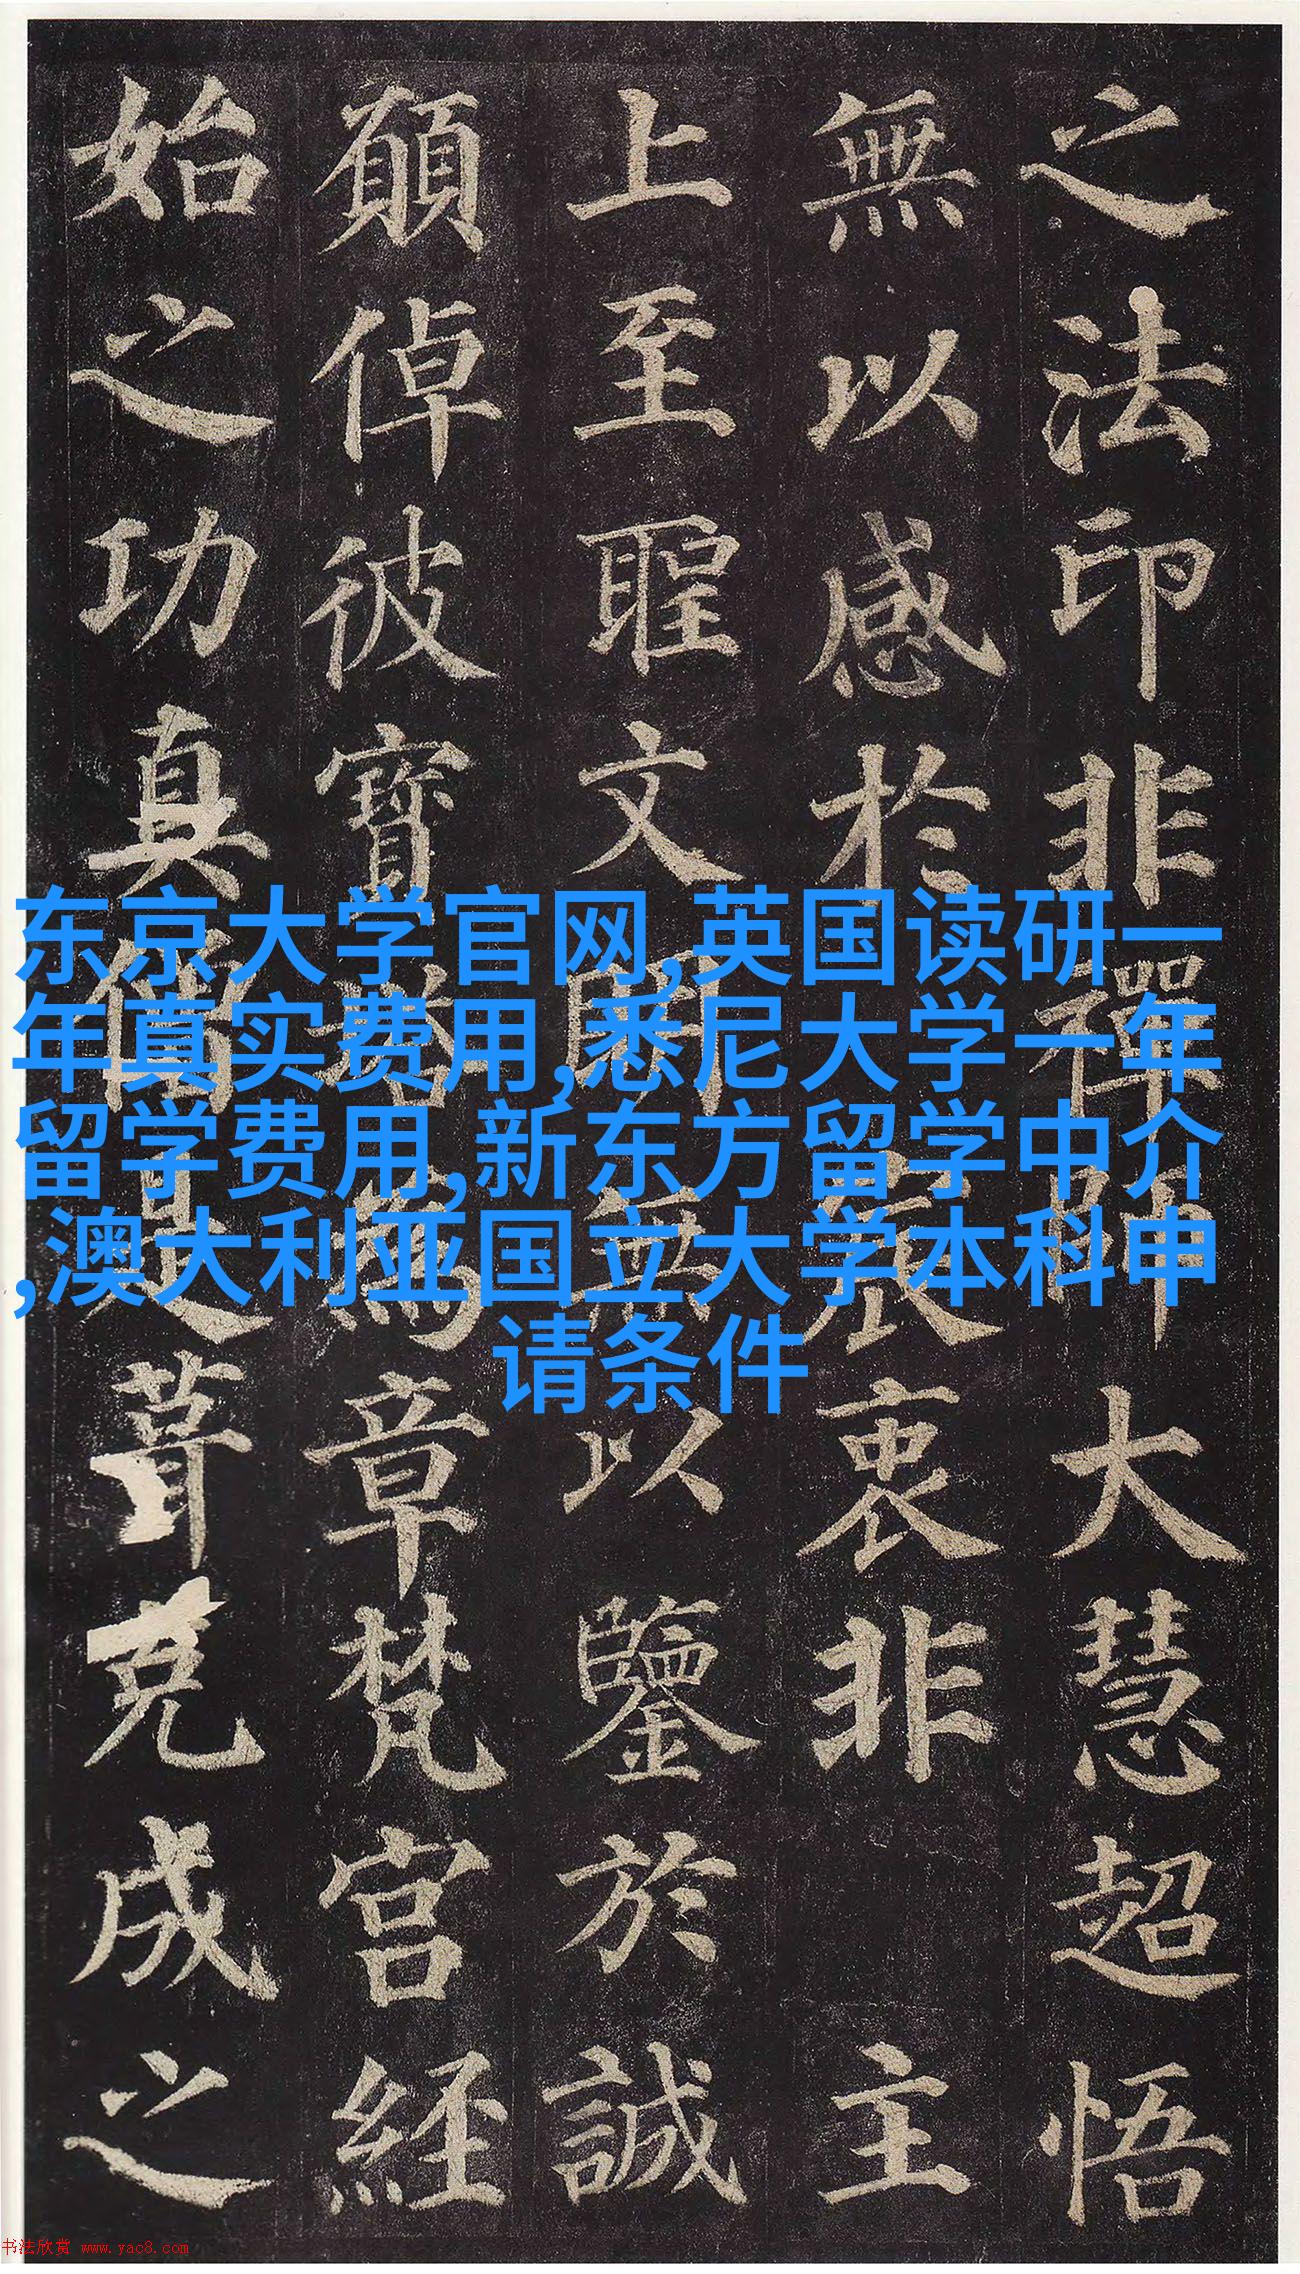 之法印非禪師大慧超悟
無以感於宸衷非主
上至聖文明無以鑒於誠
願倬彼寶塔為章梵宮經
始之功真僧是葺克成之
东京大学官网,英国读研一
年真实费用,悉尼大学一年
留学费用,新东方留学中介
,澳大利亚国立大学本科申
请条件
书法欣赏 www.yac8.com